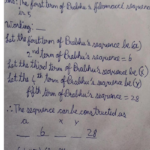 Ans: The first term of Prabhu's fibonacci sequence
is 5
Working:-
Let the first term of Prabhu's sequence be (a)
2nd term of Prabhu's sequence = 6
Let the third term of Prabhu's sequence be (x)
Let the 4th term of Prabhu's sequence be (y)
fifth term of Prabhu's sequence = 28
∴ The sequence can be constructed as
a x y
6 28